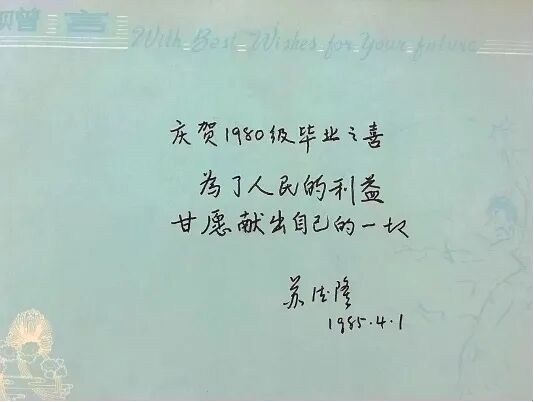 赠言
With Best Wishes for Your future
庆贺1980级毕业之喜
为了人民的利益
甘愿献出自己的一切
苏德隆
1985.4.1